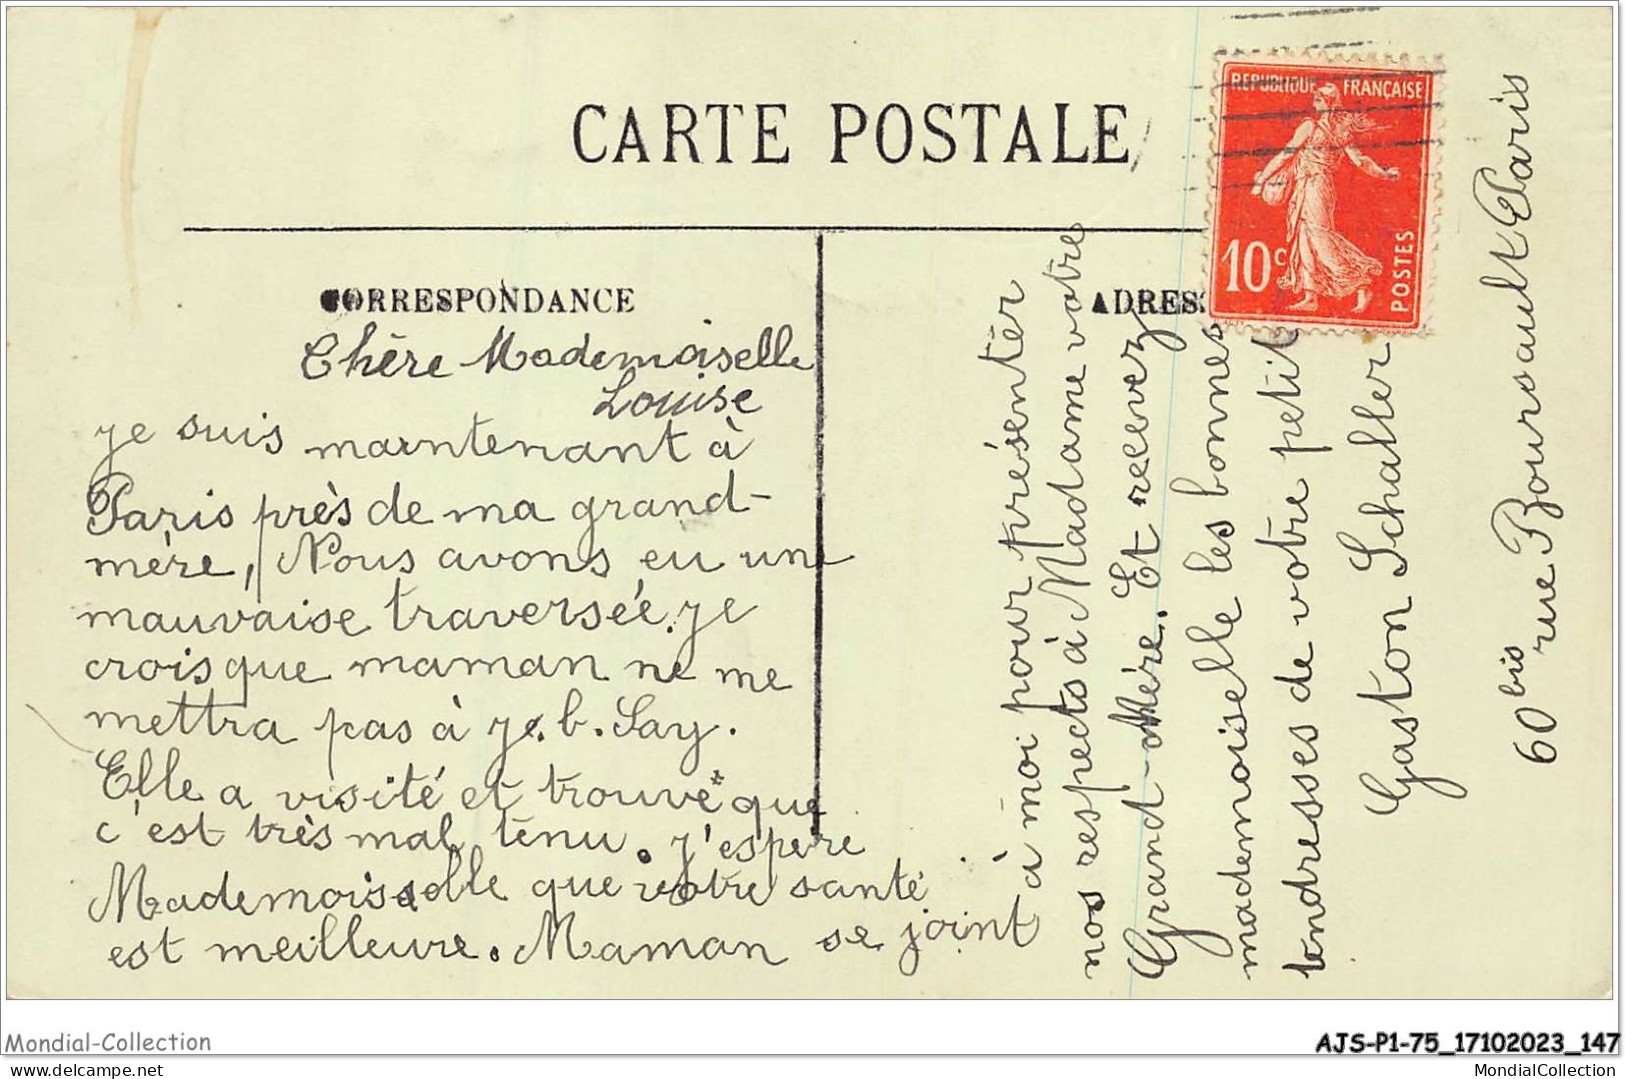 CARTE POSTALE
REPUBLIQUE FRANÇAISE
10c
POSTES
CORRESPONDANCE
ADRES
Chère Mademoiselle
Louise
je suis maintenant à
Paris près de ma grand-
mère, Nous avons eu une
mauvaise traversée. je
crois que maman ne me
mettra pas à J. b. Say.
Elle a visité et trouve que
c'est très mal tenu. j'espère
Mademoiselle que votre santé
est meilleure. Maman se joint
à moi pour présenter
nos respects à Madame votre
Grand-Mère. Et recevez
mademoiselle les bonnes
tendresses de votre petit
Gaston Schaller
60 bis rue Boursault Paris
Mondial-Collection
AJS-P1-75_17102023_147
www.delcampe.net
MondialCollection